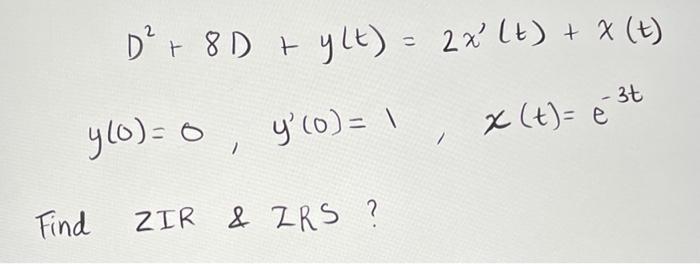 D² + 8D + y(t) = 2x'(t) + x(t)
y(0) = 0 , y'(0) = 1 , x(t) = e^-3t
Find ZIR & ZRS ?